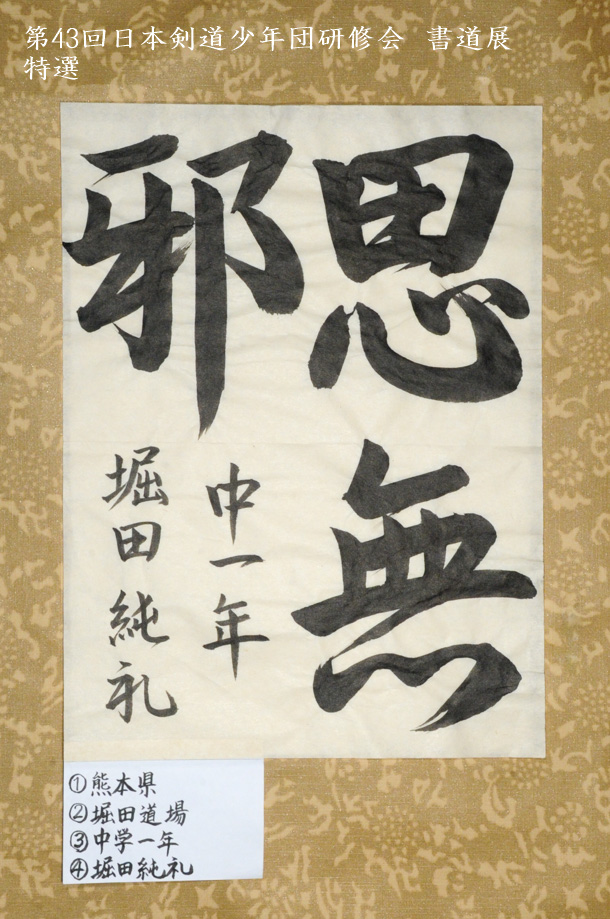 第43回日本剣道少年団研修会 書道展
特選
思無
邪
中一年
堀田純礼
①熊本県
②堀田道場
③中学一年
④堀田純礼